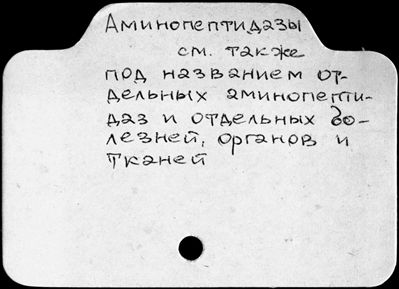 Аминопептидазы
см. также
под названием от-
дельных аминопепти-
даз и отдельных бо-
лезней, органов и
тканей